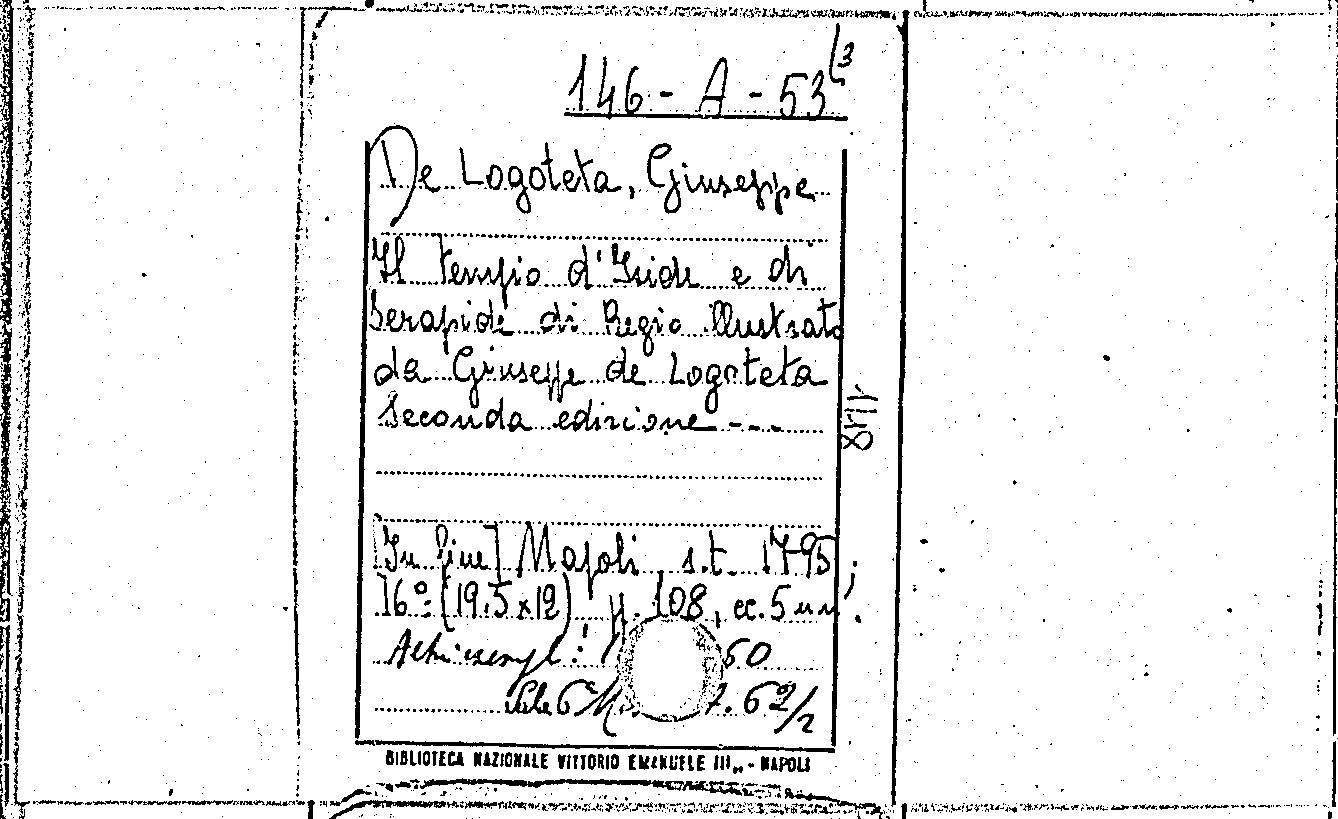 146 - A - 53 (3
De Logoteta, Giuseppe
Il tempio d'Iside e di
Serapide di Regio illustrato
da Giuseppe de Logoteta
Seconda edizione ---
[In fine] Napoli, s.t. 1795;
16º: (19,5 x 12) pp. 108, cc. 5 nn.
Altri esempl: 60
Sala 6ª 7. 62/2
BIBLIOTECA NAZIONALE VITTORIO EMANUELE III„ - NAPOLI